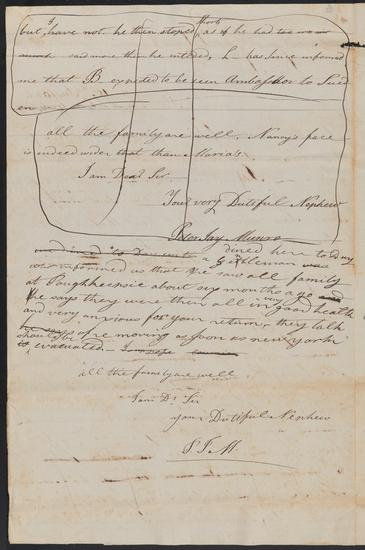 but I have not. he then stoped short as if he had too
said more than he intended, L- has since informed
me that B- expected to be seen Ambassador to Swed
en
all the family are well, Nancy's face
is indeed wider that than Maria's.
I am Dear Sir.
Your very Dutiful Nephew
Peter Jay Munro
dined here to day
informed us that he saw all family
at Poughkeepsie about six months ago and
he says they were them all in very good health
and very anxious for your return, they talk
of re moving as soon as new york
should be
is evacuated.
all the family are well
I am Dr Sir
your Dutiful Nephew
P. J. M.